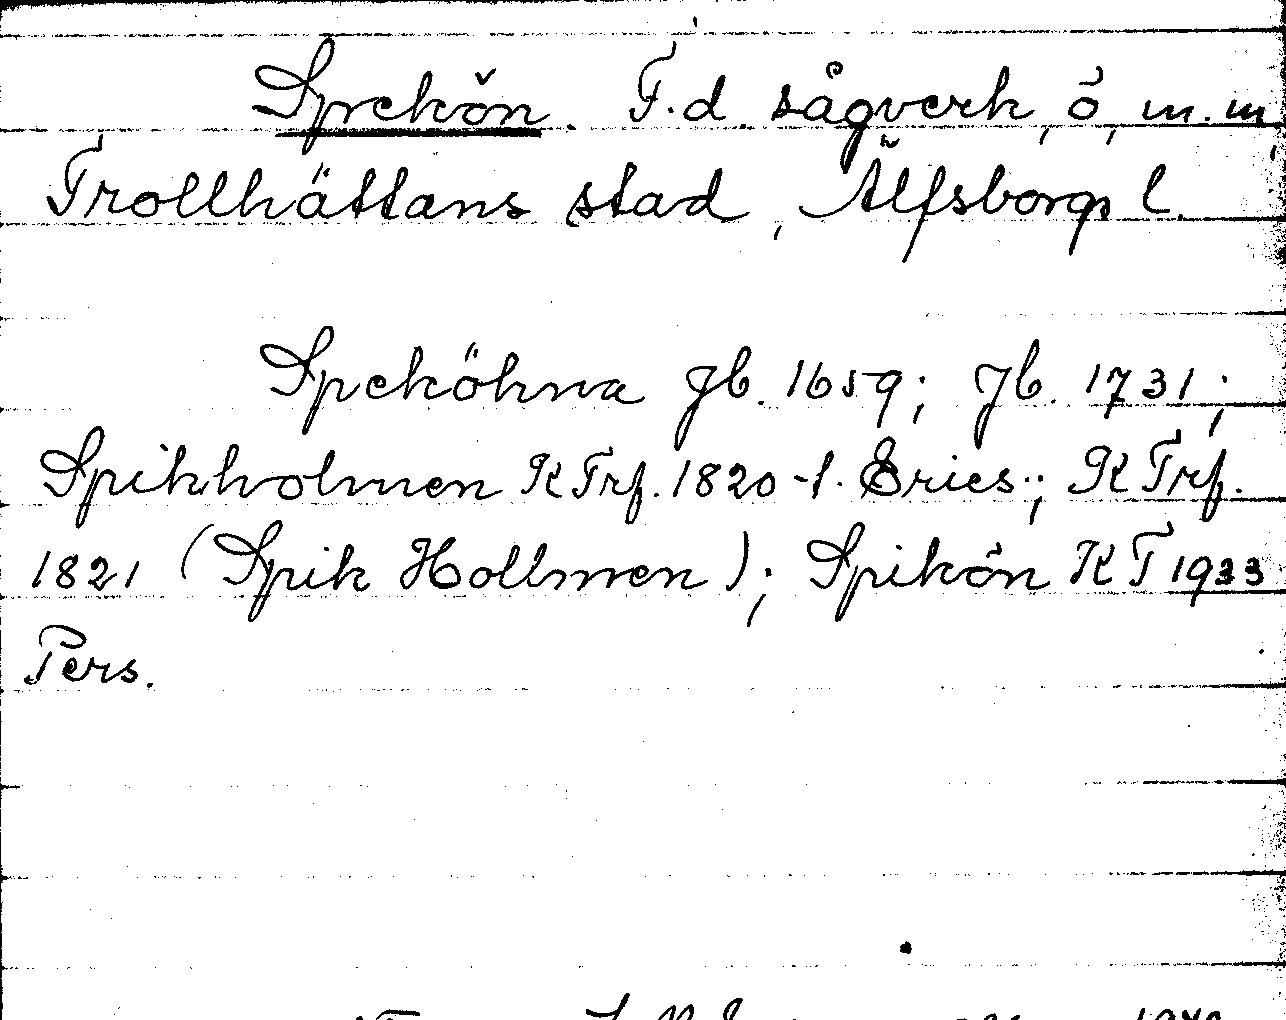 Spekön. F.d. sågverk, ö, m.m,
Trollhättans stad, Älfsborgs l.
Speköhna Jb. 1659; Jb. 1731;
Spikholmen KTrf. 1820-t. Erics.; KTrf.
1821 (Spik Hollmen); Spikön KT 1933
Pers.